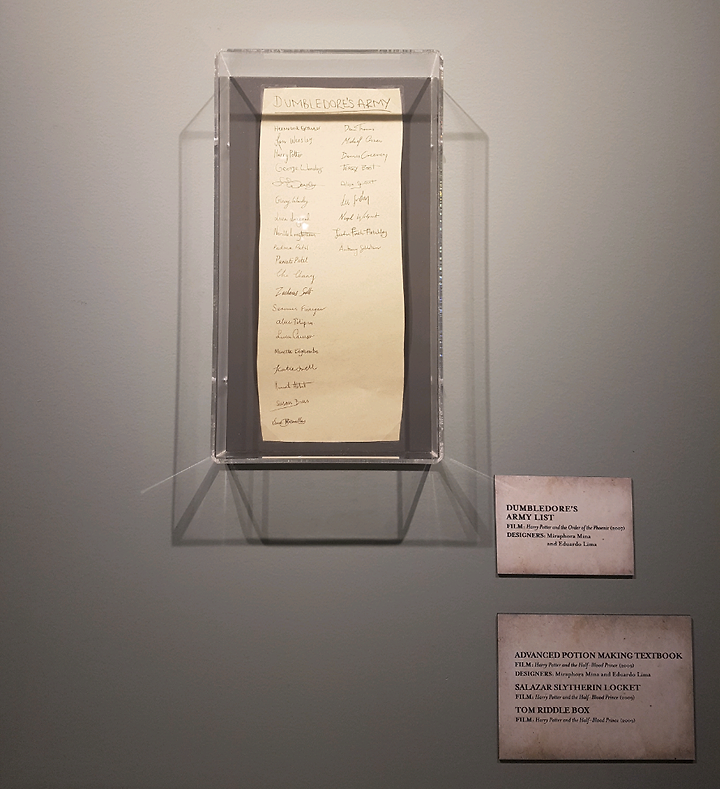 DUMBLEDORE'S ARMY
Hermione Granger
Harry Potter
George Weasley
Ginny Weasley
Neville Longbottom
Padma Patel
Parvati Patel
Cho Chang
Zacharias Smith
Seamus Finnigan
Alicia Spinnet
Marietta Edgecombe
Katie Bell
Hannah Abbott
Susan Bones
Dean Thomas
Michael Corner
Dennis Creevey
Terry Boot
Lee Jordan
Nigel Wolpert
Justin Finch-Fletchley
Anthony Goldstein
DUMBLEDORE'S
ARMY LIST
FILM: Harry Potter and the Order of the Phoenix (2007)
DESIGNERS: Miraphora Mina
and Eduardo Lima
ADVANCED POTION MAKING TEXTBOOK
FILM: Harry Potter and the Half-Blood Prince (2009)
DESIGNERS: Miraphora Mina and Eduardo Lima
SALAZAR SLYTHERIN LOCKET
FILM: Harry Potter and the Half-Blood Prince (2009)
TOM RIDDLE BOX
FILM: Harry Potter and the Half-Blood Prince (2009)